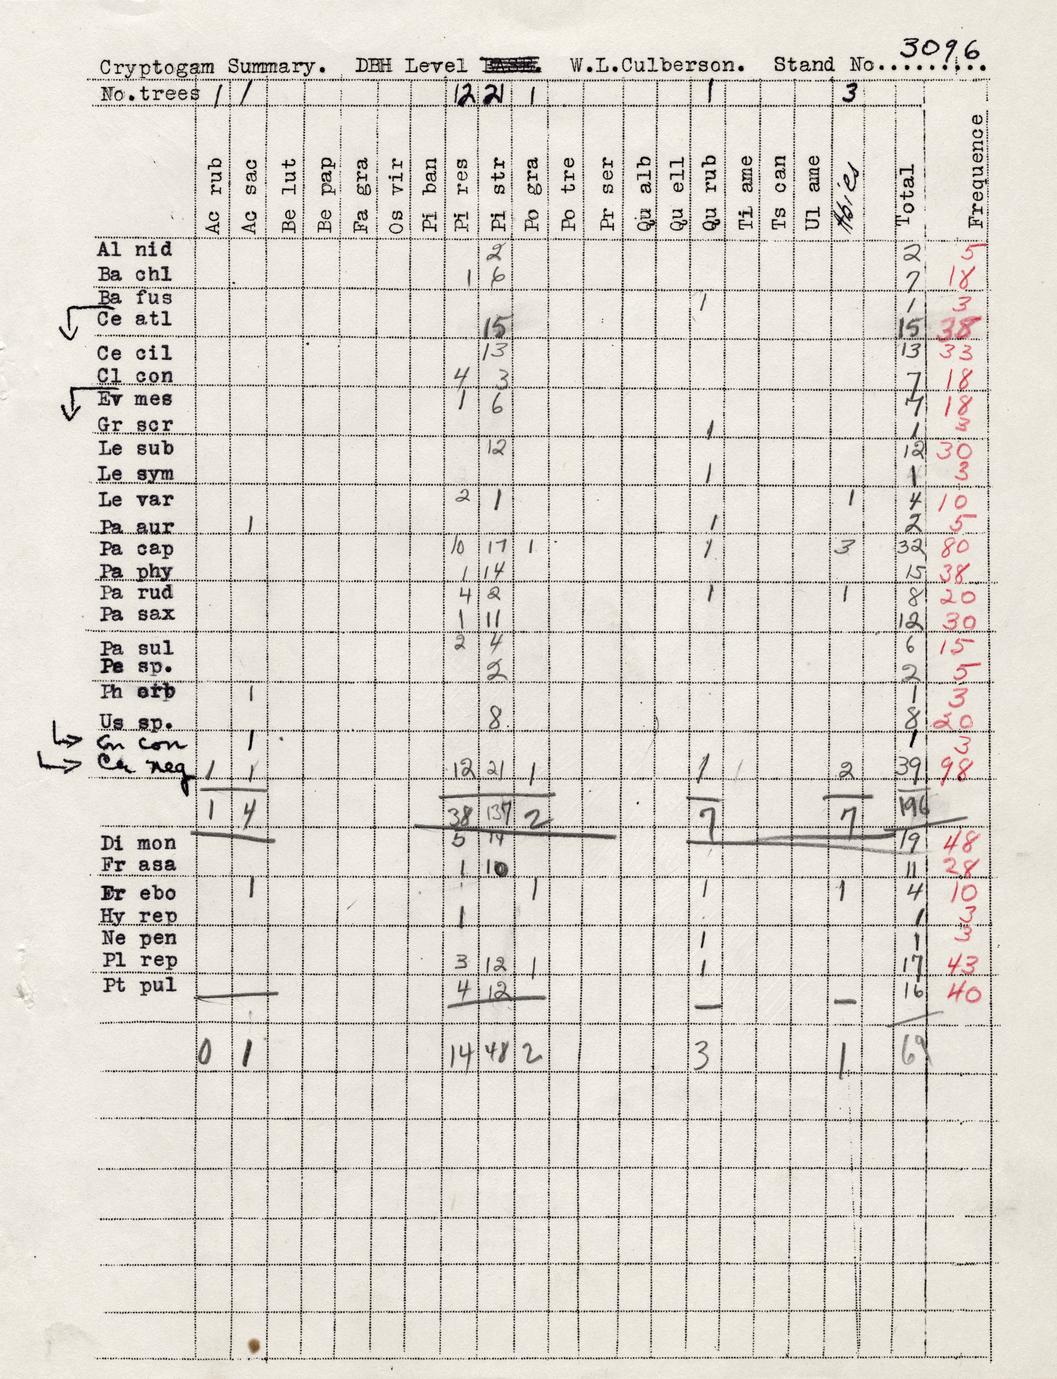 3096
Cryptogam Summary. DBH Level W.L.Culberson. Stand No..........
No.trees 1 1 12 21 1 1 3
Ac rub Ac sac Be lut Be pap Fa gra Os vir Pi ban Pi res Pi str Po gra Po tre Pr ser Qu alb Qu ell Qu rub Ti ame Ts can Ul ame Abies Total Frequence
Al nid 2 2 5
Ba chl 1 6 7 18
Ba fus 1 1 3
Ce atl 15 15 38
Ce cil 13 13 33
Cl con 4 3 7 18
Ev mes 1 6 7 18
Gr scr 1 1 3
Le sub 12 12 30
Le sym 1 1 3
Le var 2 1 1 4 10
Pa aur 1 1 2 5
Pa cap 10 17 1 1 3 32 80
Pa phy 1 14 15 38
Pa rud 4 2 1 1 8 20
Pa sax 1 11 12 30
Pa sul 2 4 6 15
Pe sp. 2 2 5
Ph orb 1 1 3
Us sp. 8 8 20
con 1 1 3
neg 1 1 12 21 1 1 2 39 98
1 4 38 137 2 7 7 196
Di mon 5 14 19 48
Fr asa 1 10 11 28
Fr ebo 1 1 1 1 4 10
Hy rep 1 1 3
Ne pen 1 1 3
Pl rep 3 12 1 1 17 43
Pt pul 4 12 16 40
0 1 14 48 2 3 1 69